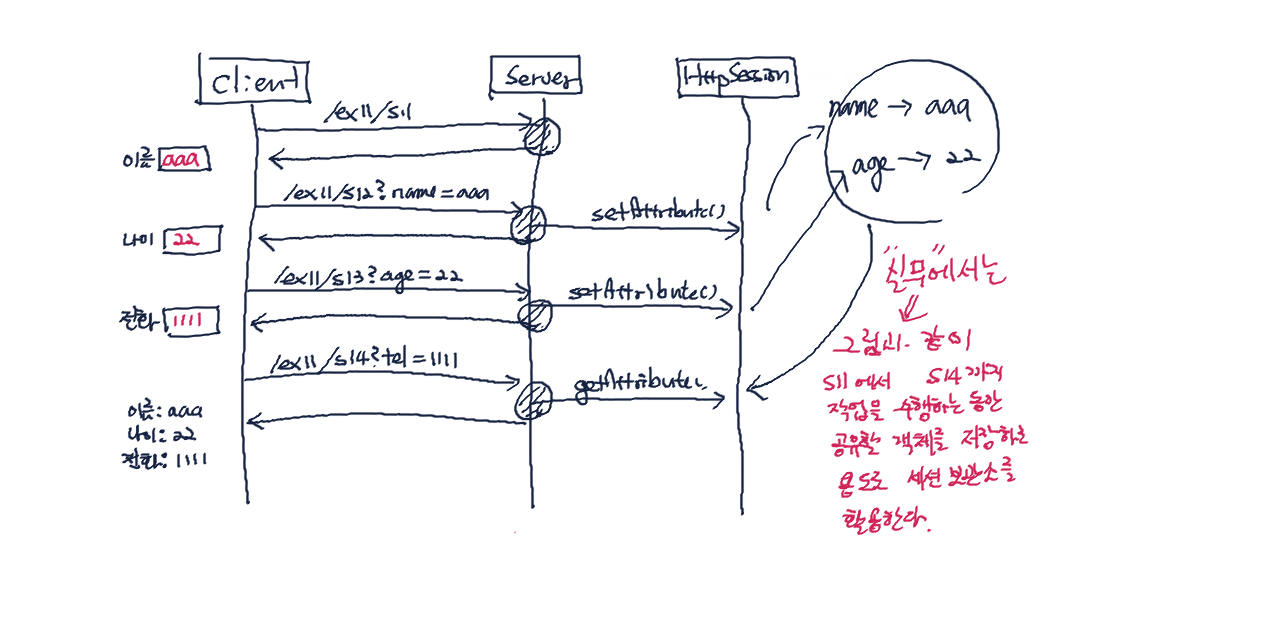 Client
Server
HttpSession
/ex11/s11
이름 aaa
/ex11/s12?name=aaa
setAttribute()
name → aaa
age → 22
나이 22
/ex11/s13?age=22
setAttribute()
전화 1111
/ex11/s14?tel=1111
getAttribute(
이름: aaa
나이: 22
전화: 1111
"실무"에서는
그림과 같이
s11에서 s14까지
작업을 수행하는 동안
공유할 객체를 저장하는
용도로 세션 보관소를
활용한다.